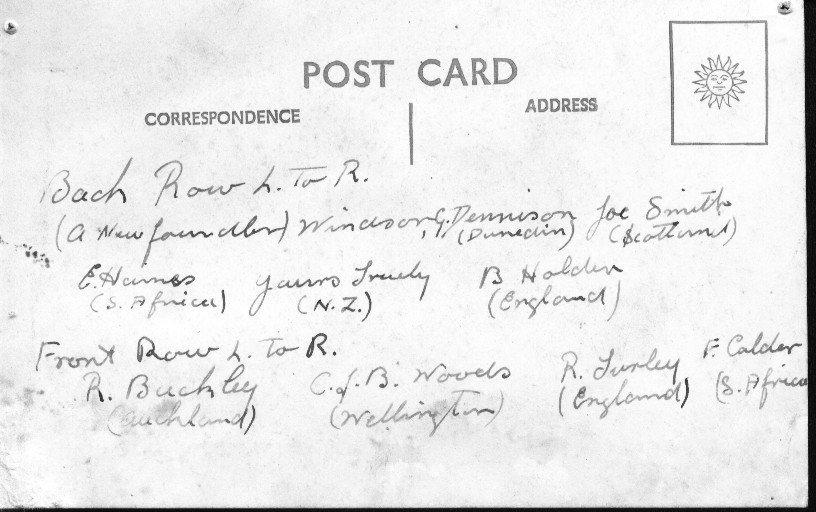 POST CARD
CORRESPONDENCE
ADDRESS
Back Row L. To R.
(A Newfoundler) Windson, G. Dennison Joe Smith
(Dunedin) (Scotland)
E. Haines Yours Truely B Holden
(S. Africa) (N.Z.) (England)
Front Row L. To R.
R. Buckley C.J.B. Woods R. Turley F. Calder
(Auckland) (Wellington) (England) (S. Africa